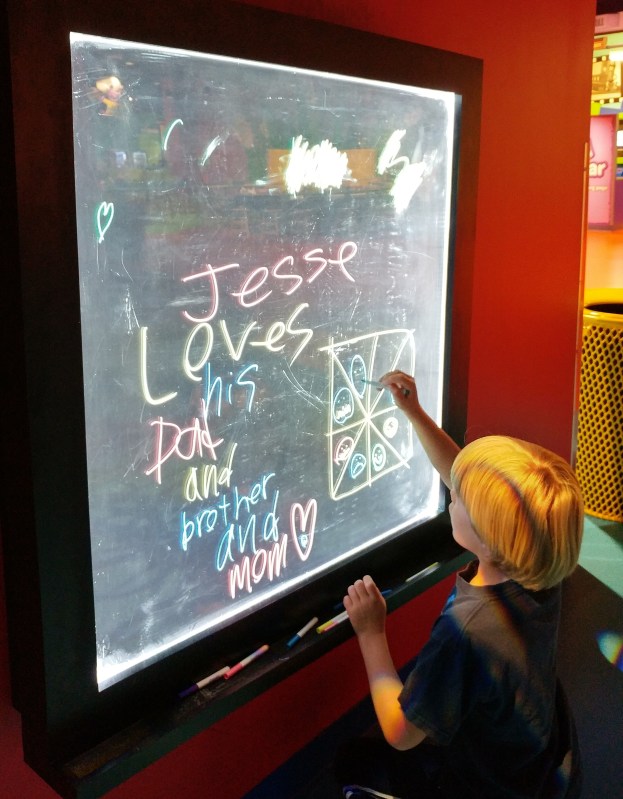 Jesse
Loves
his
Dad
and
brother
and
mom